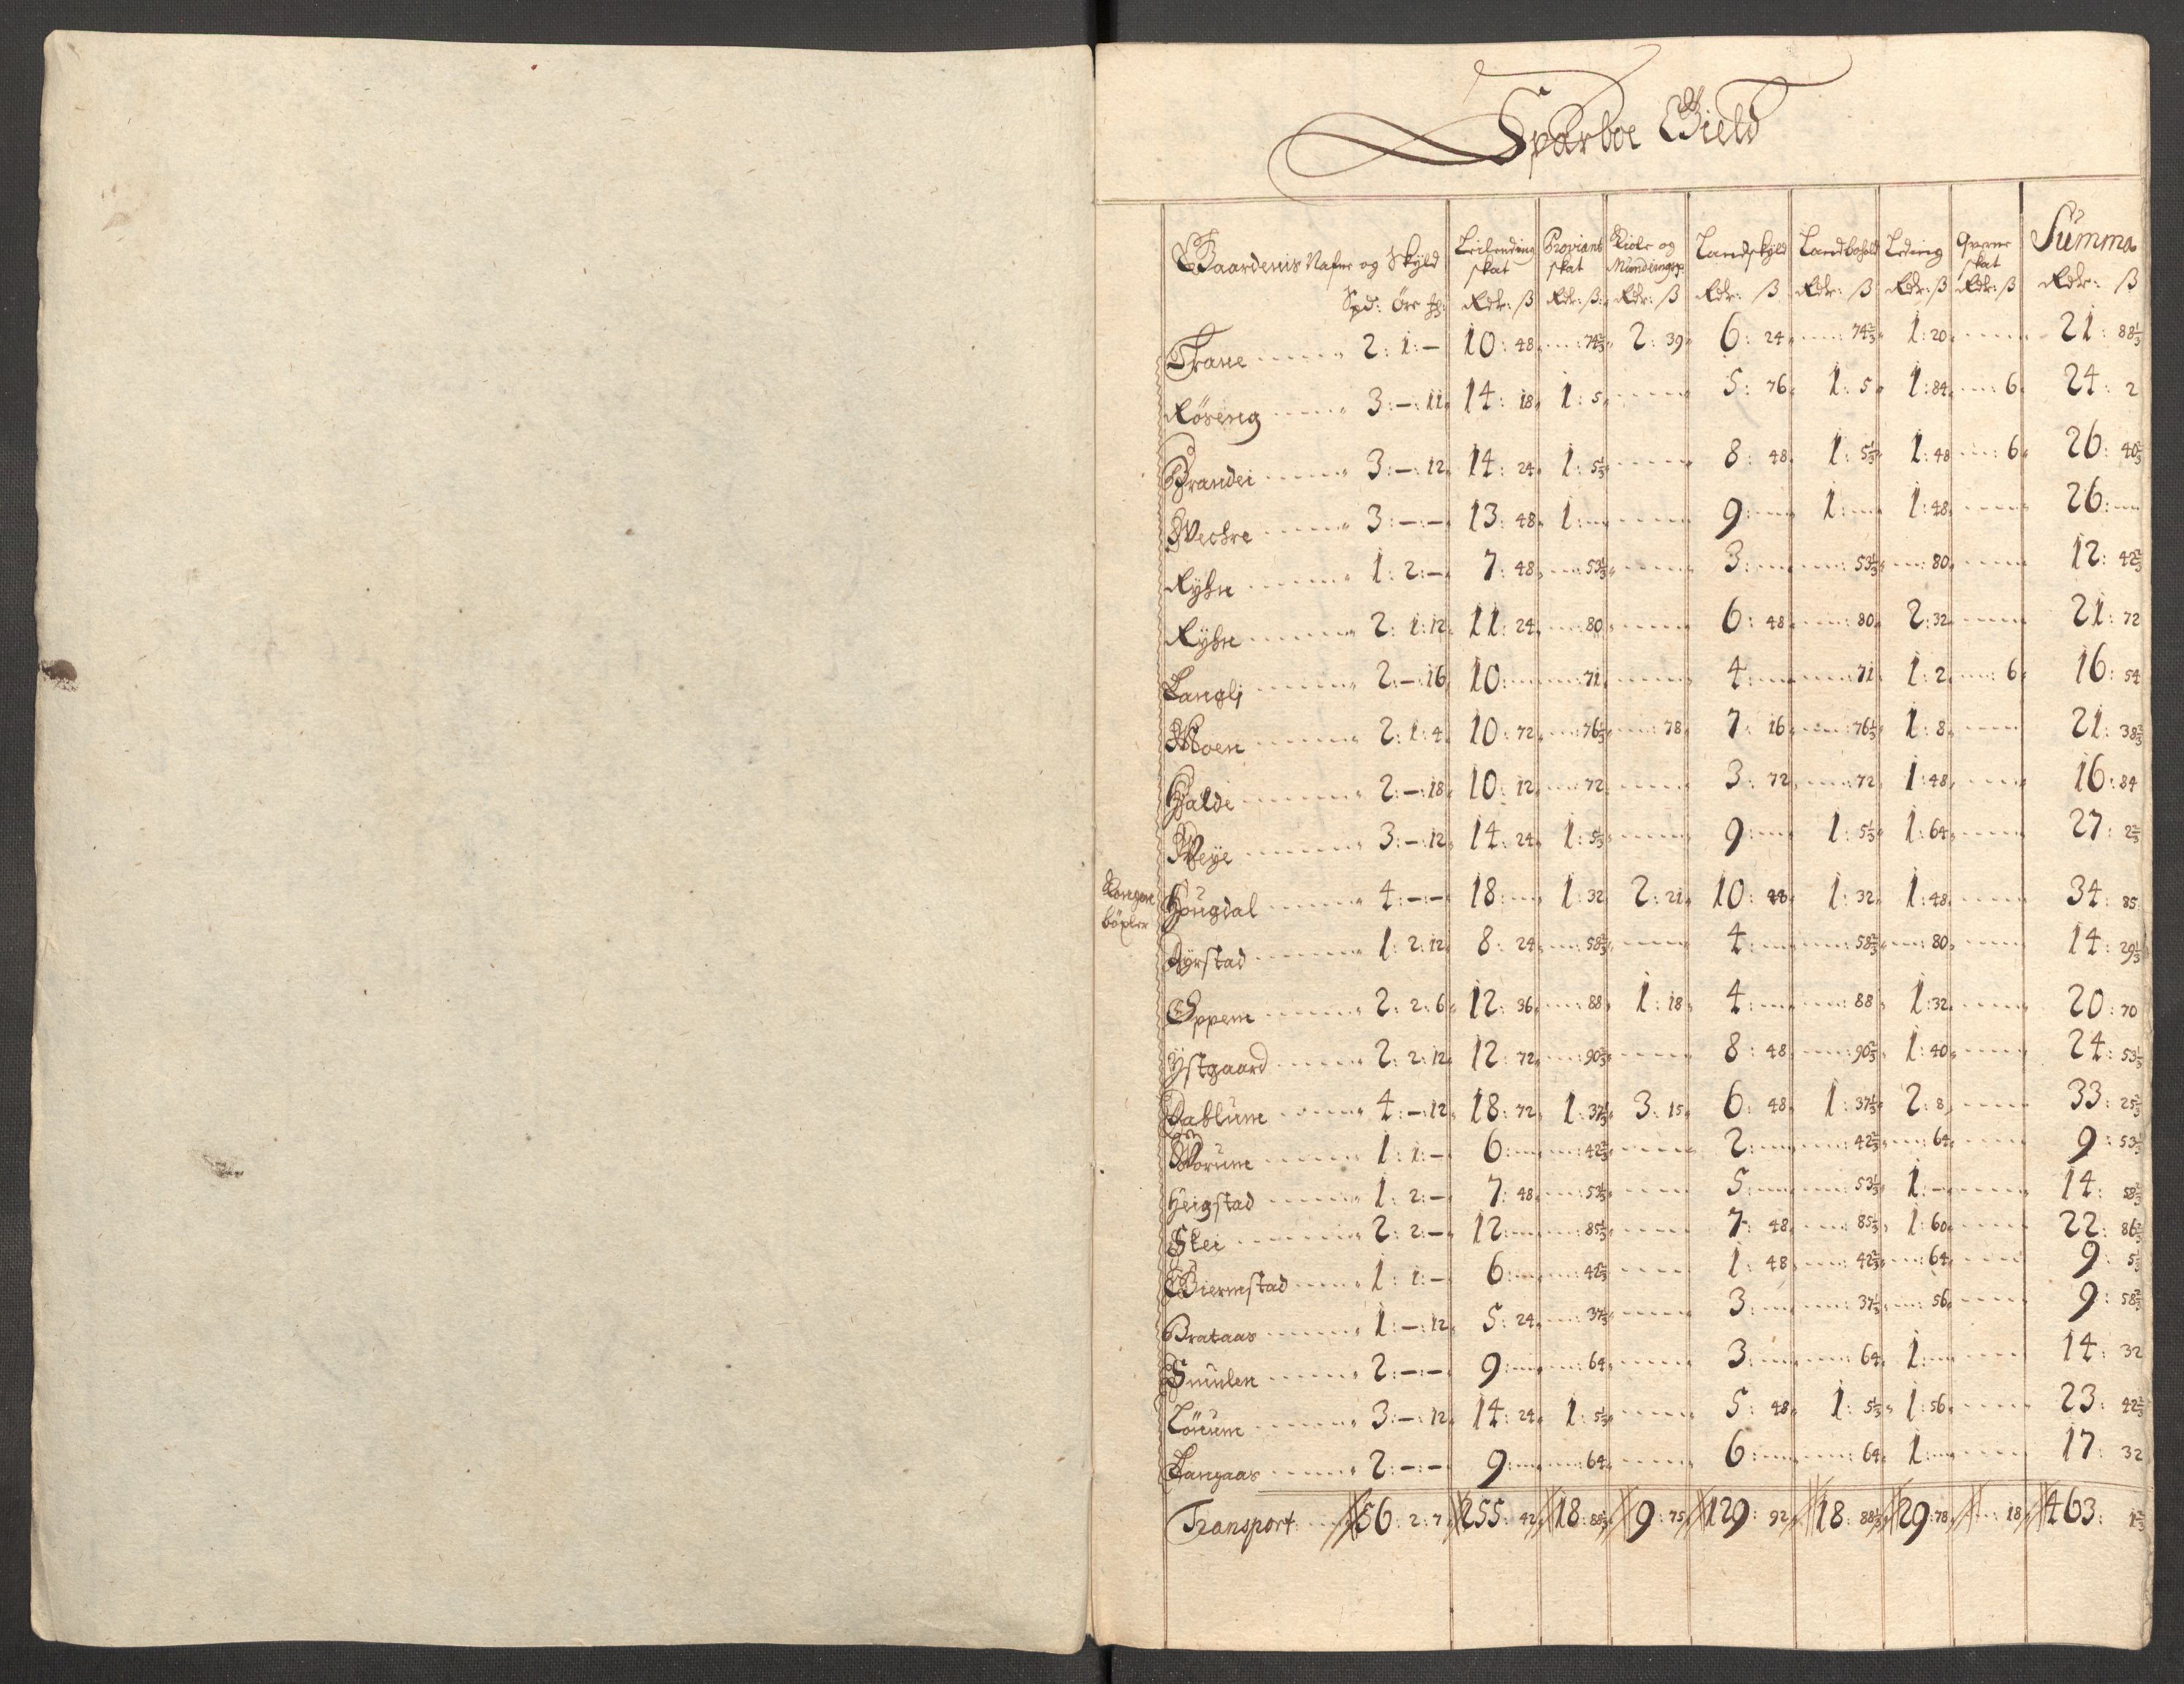 Sparboe Gield
Gaardenis Nafne og Skyld Leilending skat Proviant skat Kiole og Mundering p Landskyld Landbohold Leding Qverne skat Summa
Spd: Øre Rdr: ß Rdr: ß Rdr: ß Rdr: ß Rdr: ß Rdr: ß Rdr: ß Rdr: ß
Trane 2: 1: — 10: 48 74 2/3 2: 39 6: 24 74 2/3 1: 20 21: 88 1/3
Røseng 3: —: 11 14: 18 1: 5 5: 76 1: 5 1: 84 6 24: 2
Brandei 3: —: 12 14: 24 1: 5 1/3 8: 48 1: 5 1/3 1: 48 6 26: 40 2/3
Wechre 3: —: — 13: 48 1: 9: 1: 1: 48 26:
Ryhn 1: 2: — 7: 48 53 1/3 3: 53 1/3 80 12: 42 2/3
Ryhn 2: 1: 12 11: 24 80 6: 48 80 2: 32 21: 72
Langlj 2: —: 16 10: 71 4: 71 1: 2 6 16: 54
Moen 2: 1: 4 10: 72 76 1/3 78 7: 16 76 1/3 1: 8 21: 38 2/3
Halde 2: —: 18 10: 12 72 3: 72 72 1: 48 16: 84
Weye 3: —: 12 14: 24 1: 5 1/3 9: 1: 5 1/3 1: 64 27: 2 2/3
Kongens bøxler Hougdal 4: —: — 18: 1: 32 2: 21 10: 48 1: 32 1: 48 34: 85
Dyrstad 1: 2: 12 8: 24 58 2/3 4: 58 2/3 80 14: 29 1/3
Oppem 2: 2: 6 12: 36 88 1: 18 4: 88 1: 32 20: 70
Ystgaard 2: 2: 12 12: 72 90 2/3 8: 48 90 2/3 1: 40 24: 53 1/3
Dablum 4: —: 12 18: 72 1: 37 1/3 3: 15 6: 48 1: 37 1/3 2: 8 33: 25 2/3
Worum 1: 1: — 6: 42 2/3 2: 42 2/3 64 9: 53 1/3
Heigstad 1: 2: — 7: 48 53 1/3 5: 53 1/3 1: — 14: 58 2/3
Skei 2: 2: — 12: 85 1/3 7: 48 85 1/3 1: 60 22: 86 2/3
Giermstad 1: 1: — 6: 42 2/3 1: 48 42 2/3 64 9: 5 1/3
Brataas 1: —: 12 5: 24 37 1/3 3: 37 1/3 56 9: 58 2/3
Smulen 2: —: — 9: 64 3: 64 1: 14: 32
Løuum 3: —: 12 14: 24 1: 5 1/3 5: 48 1: 5 1/3 1: 56 23: 42 2/3
Langaas 2: —: — 9: 64 6: 64 1: 17: 32
Transport 56: 2: 7 255: 42 18: 88 1/3 9: 75 129: 92 18: 88 1/3 29: 78 18 463: 1 2/3